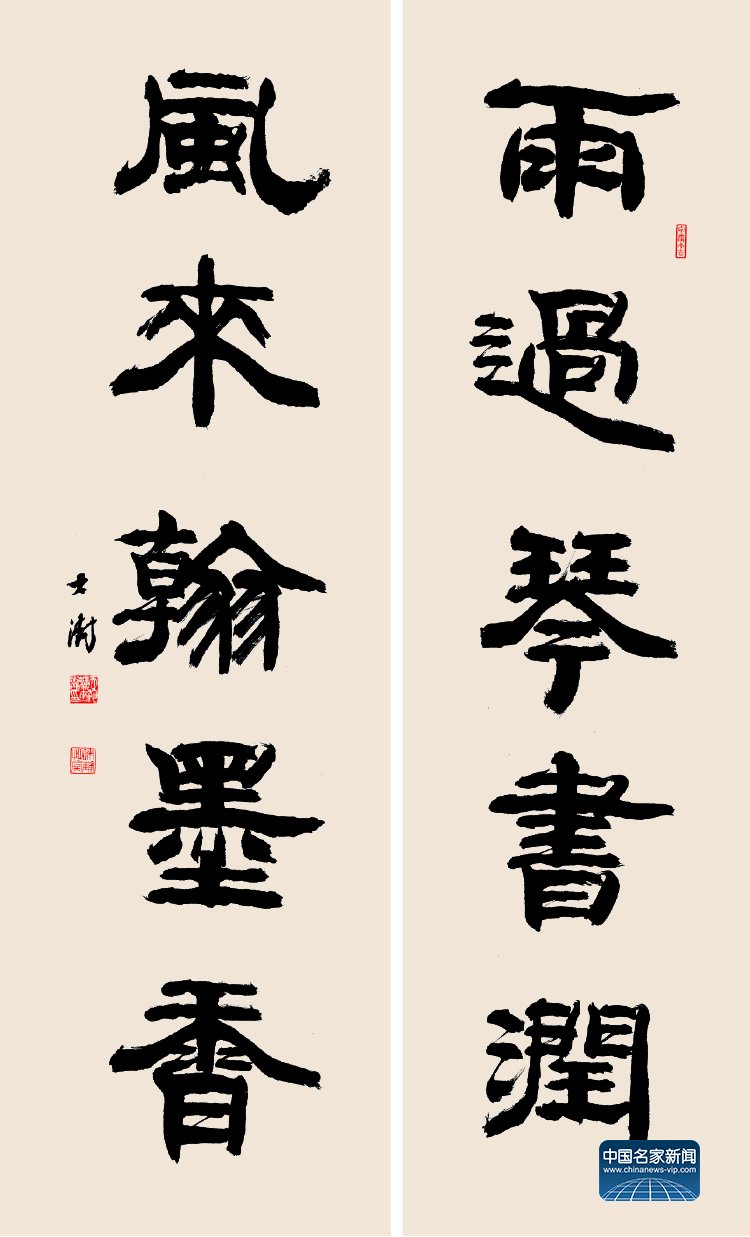 雨過琴書潤
風來翰墨香
中国名家新闻
www.chinanews-vip.com